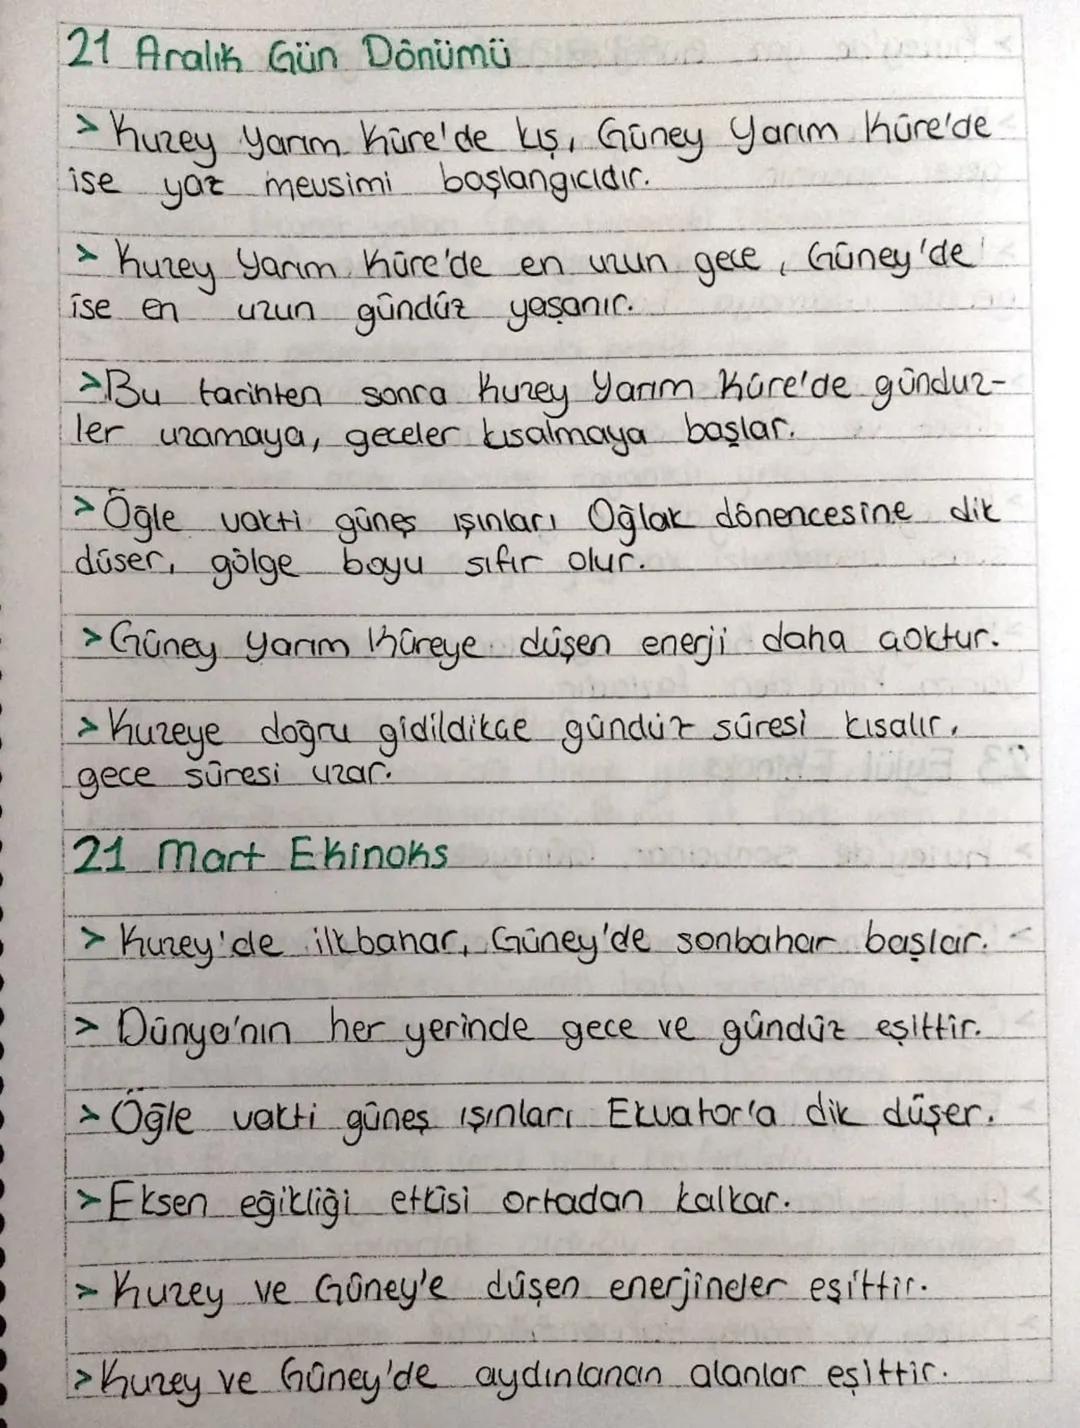 21 Aralık Gün Dönümü
> Kuzey Yarım Küre'de kış, Güney Yarım Küre'de
ise yaz mevsimi başlangıcıdır.
> Kuzey Yarım Küre'de en uzun gece, Güney'de
ise en uzun gündüz yaşanır.
> Bu tarihten sonra Kuzey Yarım Küre'de gündüz-
ler uzamaya, geceler kısalmaya başlar.
> Öğle vakti güneş ışınları Oğlak dönencesine dik
düşer, gölge boyu sıfır olur.
> Güney Yarım Küreye düşen enerji daha çoktur.
> Kuzeye doğru gidildikçe gündüz süresi kısalır,
gece süresi uzar.
21 Mart Ekinoks
> Kuzey'de ilkbahar, Güney'de sonbahar başlar.
> Dünya'nın her yerinde gece ve gündüz eşittir.
> Öğle vakti güneş ışınları Ekvator'a dik düşer.
> Eksen eğikliği etkisi ortadan kalkar.
> Kuzey ve Güney'e düşen enerjineler eşittir.
> Kuzey ve Güney'de aydınlanan alanlar eşittir.